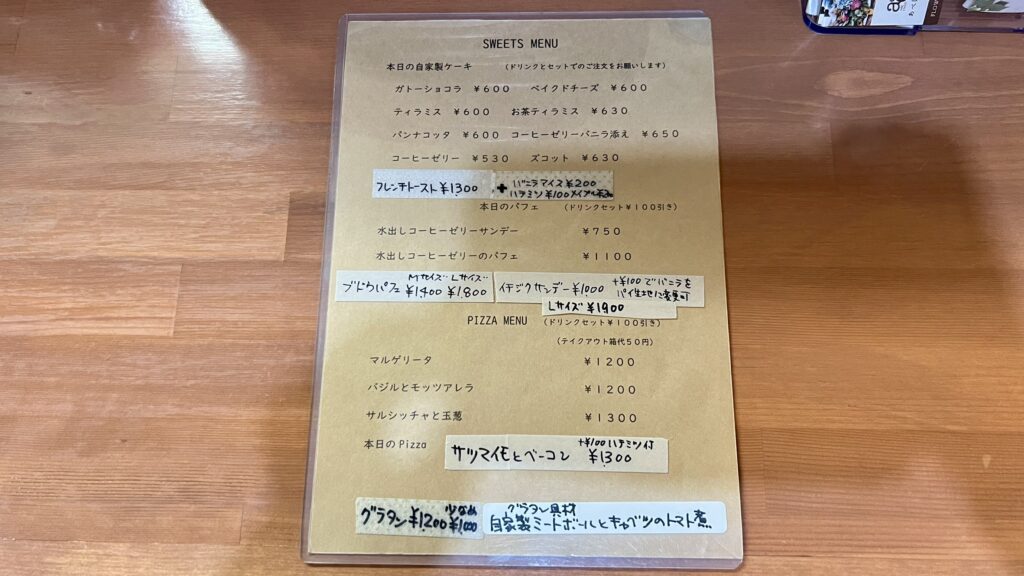 SWEETS MENU
本日の自家製ケーキ (ドリンクとセットでのご注文をお願いします)
ガトーショコラ ¥600 ベイクドチーズ ¥600
ティラミス ¥600 お茶ティラミス ¥630
パンナコッタ ¥600 コーヒーゼリーバニラ添え ¥650
コーヒーゼリー ¥530 ズコット ¥630
フレンチトースト ¥1300
+ バニラアイス ¥200
ハチミツ ¥100
本日のパフェ (ドリンクセット¥100引き)
水出しコーヒーゼリーサンデー ¥750
水出しコーヒーゼリーのパフェ ¥1100
Mサイズ Lサイズ
ブドウパフェ ¥1400 ¥1800
イチジクサンデー ¥1000 +¥100でバニラを
パイ生地に変更可
Lサイズ ¥1900
PIZZA MENU (ドリンクセット¥100引き)
(テイクアウト箱代50円)
マルゲリータ ¥1200
バジルとモッツアレラ ¥1200
サルシッチャと玉葱 ¥1300
本日のPizza
サツマイモとベーコン +¥100ハチミツ付
¥1300
グラタン ¥1200 少なめ ¥1000
グラタン具材
自家製ミートボールとキャベツのトマト煮